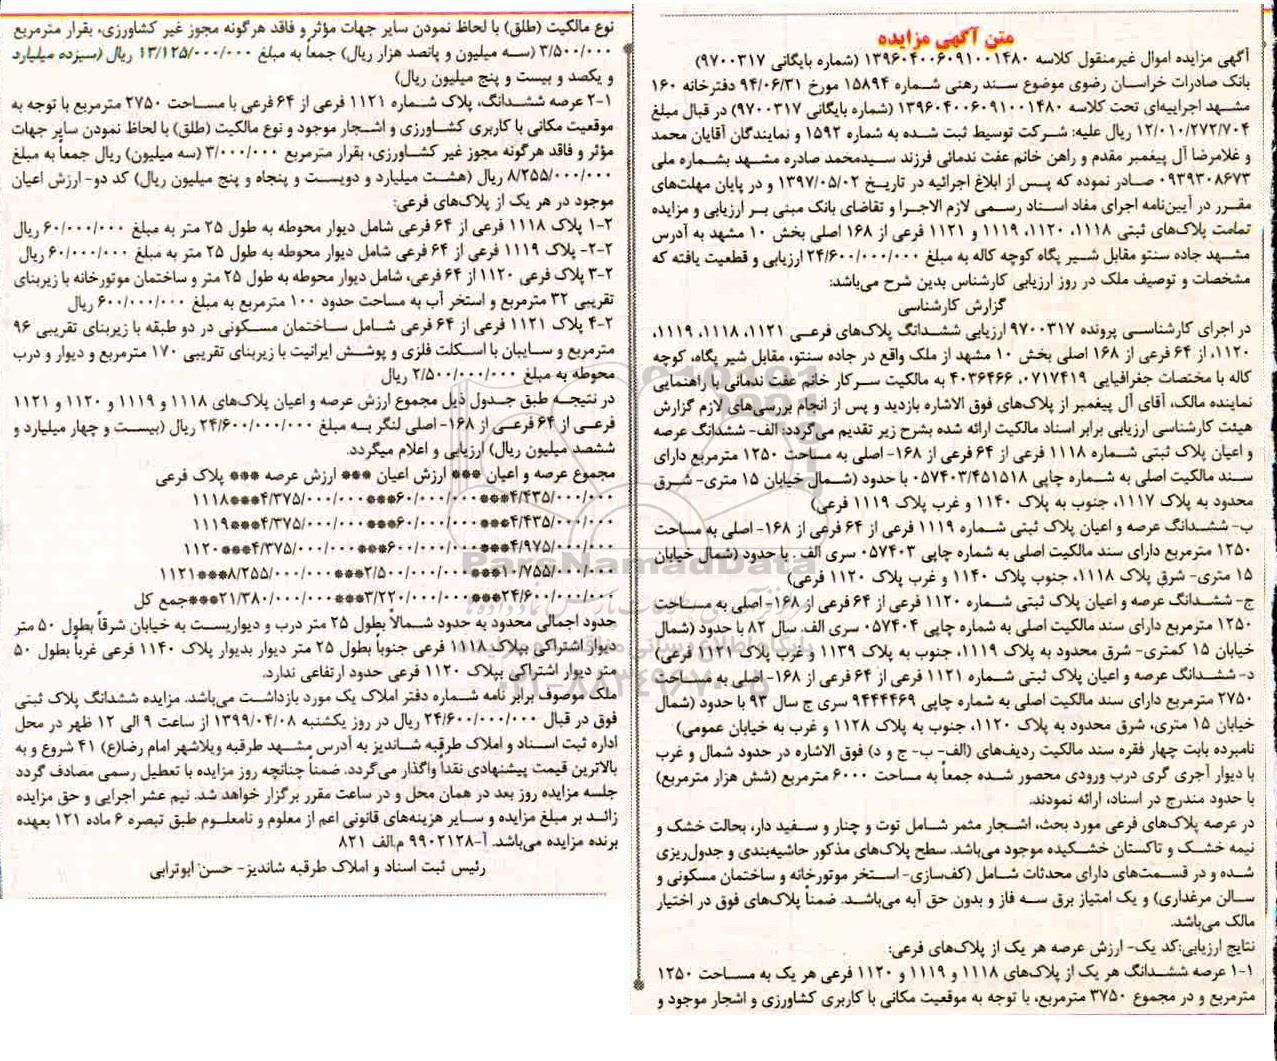 متن آگهی مزایده
آگهی مزایده اموال غیرمنقول کلاسه ۱۳۹۶۰۴۰۰۶۰۹۱۰۰۱۴۸۰ (شماره بایگانی ۹۷۰۰۳۱۷)
بانک صادرات خراسان رضوی موضوع سند رهنی شماره ۱۵۸۹۴ مورخ ۹۴/۰۶/۳۱ دفترخانه ۱۶۰
مشهد اجراییه‌ای تحت کلاسه ۱۳۹۶۰۴۰۰۶۰۹۱۰۰۱۴۸۰ (شماره بایگانی ۹۷۰۰۳۱۷) در قبال مبلغ
۱۲/۰۱۰/۲۷۲/۷۰۴ ریال علیه: شرکت توسیط ثبت شده به شماره ۱۵۹۲ و نمایندگان آقایان محمد
و غلامرضا آل پیغمبر مقدم و راهن خانم عفت ندمائی فرزند سیدمحمد صادره مشهد بشماره ملی
۰۹۳۹۳۰۸۶۷۳ صادر نموده که پس از ابلاغ اجرائیه در تاریخ ۱۳۹۷/۰۵/۰۲ و در پایان مهلت‌های
مقرر در آیین‌نامه اجرای مفاد اسناد رسمی لازم الاجرا و تقاضای بانک مبنی بر ارزیابی و مزایده
تمامت پلاک‌های ثبتی ۱۱۱۸، ۱۱۲۰، ۱۱۱۹ و ۱۱۲۱ فرعی از ۱۶۸ اصلی بخش ۱۰ مشهد به آدرس
مشهد جاده سنتو مقابل شیر پگاه کوچه کاله به مبلغ ۲۴/۶۰۰/۰۰۰/۰۰۰ ارزیابی و قطعیت یافته که
مشخصات و توصیف ملک در روز ارزیابی کارشناس بدین شرح می‌باشد:
گزارش کارشناسی
در اجرای کارشناسی پرونده ۹۷۰۰۳۱۷ ارزیابی ششدانگ پلاک‌های فرعی ۱۱۲۱، ۱۱۱۸، ۱۱۱۹،
۱۱۲۰، از ۶۴ فرعی از ۱۶۸ اصلی بخش ۱۰ مشهد از ملک واقع در جاده سنتو، مقابل شیر پگاه، کوچه
کاله با مختصات جغرافیایی ۰۷۱۷۴۱۹، ۴۰۳۶۴۶۶ به مالکیت سرکار خانم عفت ندمانی با راهنمایی
نماینده مالک، آقای آل پیغمبر از پلاک‌های فوق الاشاره بازدید و پس از انجام بررسی‌های لازم گزارش
هیئت کارشناسی ارزیابی برابر اسناد مالکیت ارائه شده بشرح زیر تقدیم می‌گردد: الف- ششدانگ عرصه
و اعیان پلاک ثبتی شماره ۱۱۱۸ فرعی از ۶۴ فرعی از ۱۶۸- اصلی به مساحت ۱۲۵۰ مترمربع دارای
سند مالکیت اصلی به شماره چاپی ۰۵۷۴۰۳/۴۵۱۵۱۸ با حدود (شمال خیابان ۱۵ متری- شرق
محدود به پلاک ۱۱۱۷، جنوب به پلاک ۱۱۴۰ و غرب پلاک ۱۱۱۹ فرعی)
ب- ششدانگ عرصه و اعیان پلاک ثبتی شماره ۱۱۱۹ فرعی از ۶۴ فرعی از ۱۶۸- اصلی به مساحت
۱۲۵۰ مترمربع دارای سند مالکیت اصلی به شماره چاپی ۰۵۷۴۰۳ سری الف . با حدود (شمال خیابان
۱۵ متری- شرق پلاک ۱۱۱۸، جنوب پلاک ۱۱۴۰ و غرب پلاک ۱۱۲۰ فرعی)
ج- ششدانگ عرصه و اعیان پلاک ثبتی شماره ۱۱۲۰ فرعی از ۶۴ فرعی از ۱۶۸- اصلی به مساحت
۱۲۵۰ مترمربع دارای سند مالکیت اصلی به شماره چاپی ۰۵۷۴۰۴ سری الف. سال ۸۲ با حدود (شمال
خیابان ۱۵ کمتری- شرق محدود به پلاک ۱۱۱۹، جنوب به پلاک ۱۱۳۹ و غرب پلاک ۱۱۲۱ فرعی)
د- ششدانگ عرصه و اعیان پلاک ثبتی شماره ۱۱۲۱ فرعی از ۶۴ فرعی از ۱۶۸- اصلی به مساحت
۲۷۵۰ مترمربع دارای سند مالکیت اصلی به شماره چاپی ۹۴۴۴۴۶۹ سری ج سال ۹۳ با حدود (شمال
خیابان ۱۵ متری، شرق محدود به پلاک ۱۱۲۰، جنوب به پلاک ۱۱۲۸ و غرب به خیابان عمومی)
نامبرده بابت چهار فقره سند مالکیت ردیف‌های (الف- ب- ج و د) فوق الاشاره در حدود شمال و غرب
با دیوار آجری گری درب ورودی محصور شده جمعاً به مساحت ۶۰۰۰ مترمربع (شش هزار مترمربع)
با حدود مندرج در اسناد، ارائه نمودند.
در عرصه پلاک‌های فرعی مورد بحث، اشجار مثمر شامل توت و چنار و سفید دار، بحالت خشک و
نیمه خشک و تاکستان خشکیده موجود می‌باشد. سطح پلاک‌های مذکور حاشیه‌بندی و جدول‌ریزی
شده و در قسمت‌های دارای محدثات شامل (کف‌سازی- استخر موتورخانه و ساختمان مسکونی و
سالن مرغداری) و یک امتیاز برق سه فاز و بدون حق آبه می‌باشد. ضمناً پلاک‌های فوق در اختیار
مالک می‌باشد.
نتایج ارزیابی:کد یک- ارزش عرصه هر یک از پلاک‌های فرعی:
۱-۱ عرصه ششدانگ هر یک از پلاک‌های ۱۱۱۸ و ۱۱۱۹ و ۱۱۲۰ فرعی هر یک به مساحت ۱۲۵۰
مترمربع و در مجموع ۳۷۵۰ مترمربع، با توجه به موقعیت مکانی با کاربری کشاورزی و اشجار موجود و
نوع مالکیت (طلق) با لحاظ نمودن سایر جهات مؤثر و فاقد هرگونه مجوز غیر کشاورزی، بقرار مترمربع
۳/۵۰۰/۰۰۰ (سه میلیون و پانصد هزار ریال) جمعاً به مبلغ ۱۳/۱۲۵/۰۰۰/۰۰۰ ریال (سیزده میلیارد
و یکصد و بیست و پنج میلیون ریال)
۲-۱ عرصه ششدانگ، پلاک شماره ۱۱۲۱ فرعی از ۶۴ فرعی با مساحت ۲۷۵۰ مترمربع با توجه به
موقعیت مکانی با کاربری کشاورزی و اشجار موجود و نوع مالکیت (طلق) با لحاظ نمودن سایر جهات
مؤثر و فاقد هرگونه مجوز غیر کشاورزی، بقرار مترمربع ۳/۰۰۰/۰۰۰ (سه میلیون) ریال جمعاً به مبلغ
۸/۲۵۵/۰۰۰/۰۰۰ ریال (هشت میلیارد و دویست و پنجاه و پنج میلیون ریال) کد دو- ارزش اعیان
موجود در هر یک از پلاک‌های فرعی:
۱-۲ پلاک ۱۱۱۸ فرعی از ۶۴ فرعی شامل دیوار محوطه به طول ۲۵ متر به مبلغ ۶۰/۰۰۰/۰۰۰ ریال
۲-۲- پلاک ۱۱۱۹ فرعی از ۶۴ فرعی شامل دیوار محوطه به طول ۲۵ متر به مبلغ ۶۰/۰۰۰/۰۰۰ ریال
۳-۲ پلاک فرعی ۱۱۲۰ از ۶۴ فرعی، شامل دیوار محوطه به طول ۲۵ متر و ساختمان موتورخانه با زیربنای
تقریبی ۳۲ مترمربع و استخر آب به مساحت حدود ۱۰۰ مترمربع به مبلغ ۶۰۰/۰۰۰/۰۰۰ ریال
۴-۲ پلاک ۱۱۲۱ فرعی از ۶۴ فرعی شامل ساختمان مسکونی در دو طبقه با زیربنای تقریبی ۹۶
مترمربع و سایبان با اسکلت فلزی و پوشش ایرانیت با زیربنای تقریبی ۱۷۰ مترمربع و دیوار و درب
محوطه به مبلغ ۲/۵۰۰/۰۰۰/۰۰۰ ریال
در نتیجه طبق جدول ذیل مجموع ارزش عرصه و اعیان پلاک‌های ۱۱۱۸ و ۱۱۱۹ و ۱۱۲۰ و ۱۱۲۱
فرعی از ۶۴ فرعی از ۱۶۸- اصلی لنگر به مبلغ ۲۴/۶۰۰/۰۰۰/۰۰۰ ریال (بیست و چهار میلیارد و
ششصد میلیون ریال) ارزیابی و اعلام میگردد.
مجموع عرصه و اعیان *** ارزش اعیان *** ارزش عرصه *** پلاک فرعی
۴/۴۳۵/۰۰۰/۰۰۰***۶۰/۰۰۰/۰۰۰***۴/۳۷۵/۰۰۰/۰۰۰***۱۱۱۸
۴/۴۳۵/۰۰۰/۰۰۰***۶۰/۰۰۰/۰۰۰***۴/۳۷۵/۰۰۰/۰۰۰***۱۱۱۹
۴/۹۷۵/۰۰۰/۰۰۰***۶۰۰/۰۰۰/۰۰۰***۴/۳۷۵/۰۰۰/۰۰۰***۱۱۲۰
۱۰/۷۵۵/۰۰۰/۰۰۰***۲/۵۰۰/۰۰۰/۰۰۰***۸/۲۵۵/۰۰۰/۰۰۰***۱۱۲۱
۲۴/۶۰۰/۰۰۰/۰۰۰***۳/۲۲۰/۰۰۰/۰۰۰***۲۱/۳۸۰/۰۰۰/۰۰۰***جمع کل
حدود اجمالی محدود به حدود شمالاً بطول ۲۵ متر درب و دیواریست به خیابان شرقاً بطول ۵۰ متر
دیوار اشتراکی بپلاک ۱۱۱۸ فرعی جنوباً بطول ۲۵ متر دیوار بدیوار پلاک ۱۱۴۰ فرعی غرباً بطول ۵۰
متر دیوار اشتراکی بپلاک ۱۱۲۰ فرعی حدود ارتفاعی ندارد.
ملک موصوف برابر نامه شماره دفتر املاک یک مورد بازداشت می‌باشد. مزایده ششدانگ پلاک ثبتی
فوق در قبال ۲۴/۶۰۰/۰۰۰/۰۰۰ ریال در روز یکشنبه ۱۳۹۹/۰۴/۰۸ از ساعت ۹ الی ۱۲ ظهر در محل
اداره ثبت اسناد و املاک طرقبه شاندیز به آدرس مشهد طرقبه ویلاشهر امام رضا(ع) ۴۱ شروع و به
بالاترین قیمت پیشنهادی نقداً واگذار می‌گردد. ضمناً چنانچه روز مزایده با تعطیل رسمی مصادف گردد
جلسه مزایده روز بعد در همان محل و در ساعت مقرر برگزار خواهد شد. نیم عشر اجرایی و حق مزایده
زائد بر مبلغ مزایده و سایر هزینه‌های قانونی اعم از معلوم و نامعلوم طبق تبصره ۶ ماده ۱۲۱ بعهده
برنده مزایده می‌باشد. آ-۹۹۰۲۱۲۸ م.الف ۸۲۱
رئیس ثبت اسناد و املاک طرقبه شاندیز- حسن ابوترابی
ParsNamadData